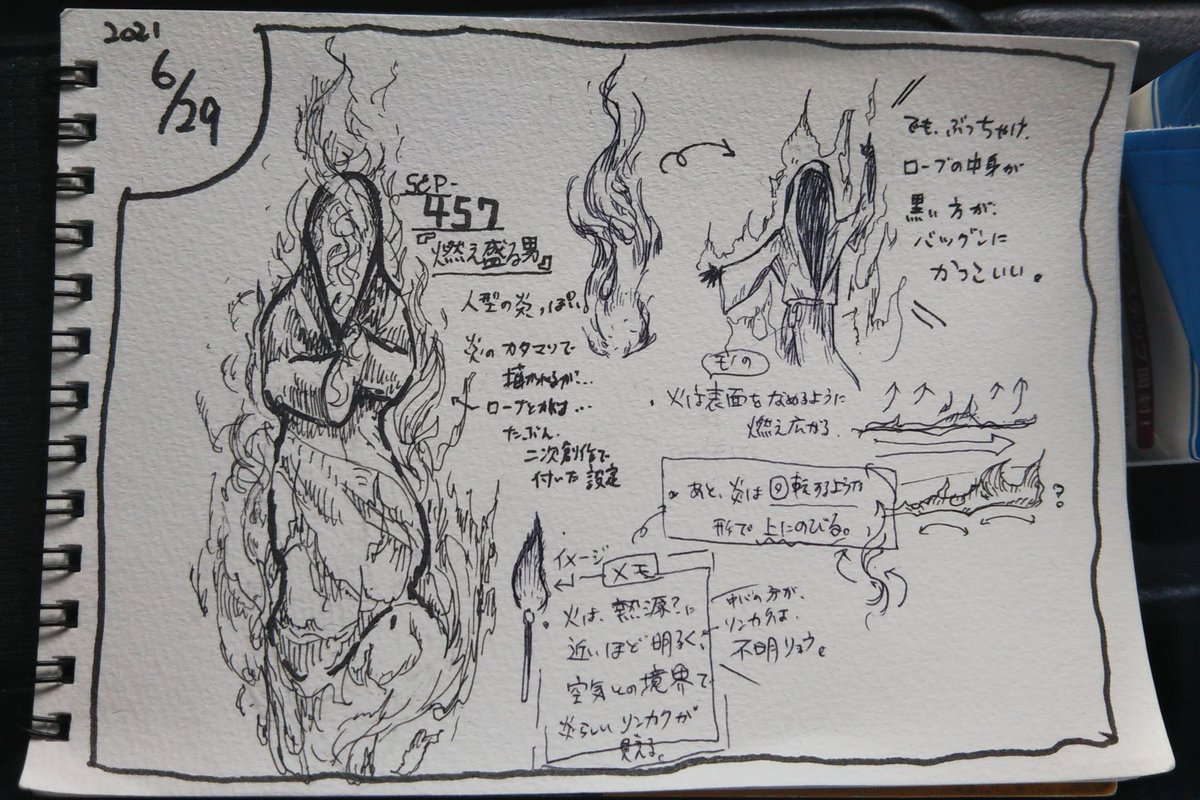 2021
6/29
SCP-
457
『燃え盛る男』
人型の炎っぽい。
炎のカタマリで
描かれるが…
ローブとかは…
たぶん、
二次創作で
付いた設定
でも、ぶっちゃけ、
ローブの中身が
黒い方が、
バツグンに
かっこいい。
モノの
・火は表面をなめるように
燃え広がる。
・あと、炎は回転するような
形で上にのびる。
?
イメージ
メモ
・火は、熱源?に
近いほど明るく、
空気との境界で
炎らしいリンカクが
見える。
中心の方が、
リンカクは、
不明リョウ。